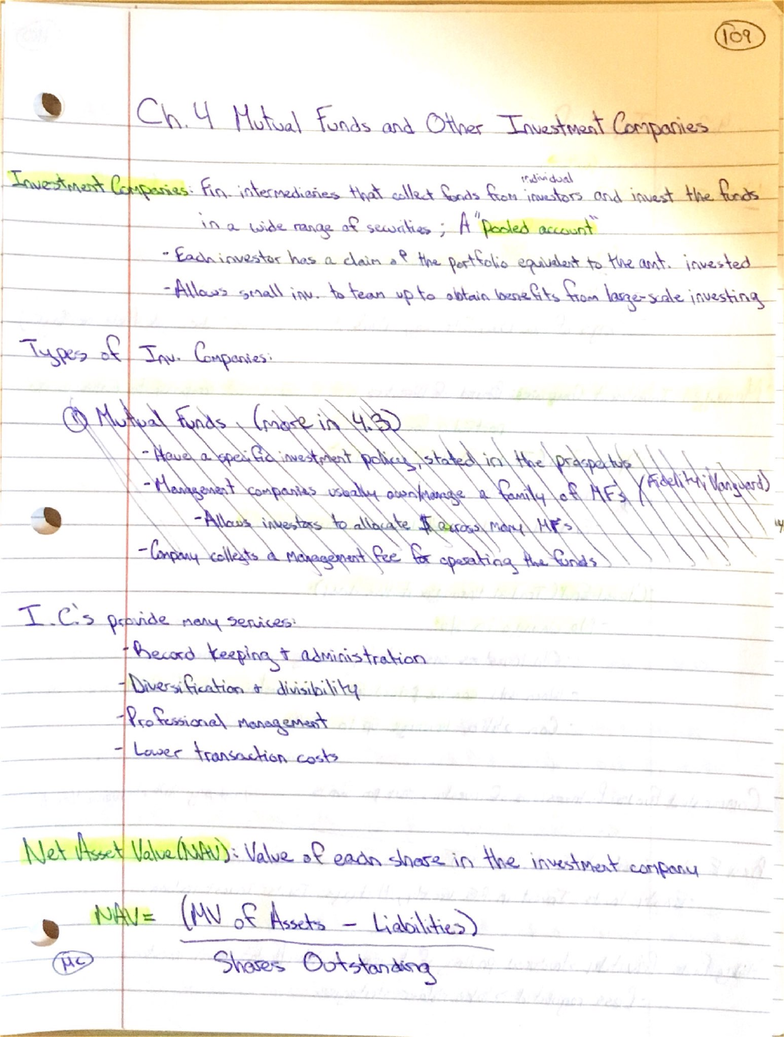 109
Ch. 4 Mutual Funds and Other Investment Companies
individual
Investment Companies: Fin. intermediaries that collect funds from investors and invest the funds
in a wide range of securities; A "pooled account"
- Each investor has a claim of the portfolio equivalent to the amt. invested
- Allows small inv. to team up to obtain benefits from larger-scale investing
Types of Inv. Companies:
① Mutual Funds (more in 4.3)
- Have a specific investment policy, stated in the prospectus
- Management companies usually own/manage a family of MFs (Fidelity; Vanguard)
- Allows investors to allocate $ across many MFs
- Company collects a management fee for operating the funds
I.C.'s provide many services:
- Record keeping + administration
- Diversification + divisibility
- Professional management
- Lower transaction costs
Net Asset Value (NAV): Value of each share in the investment company
NAV = (MV of Assets - Liabilities)
Shares Outstanding
MC